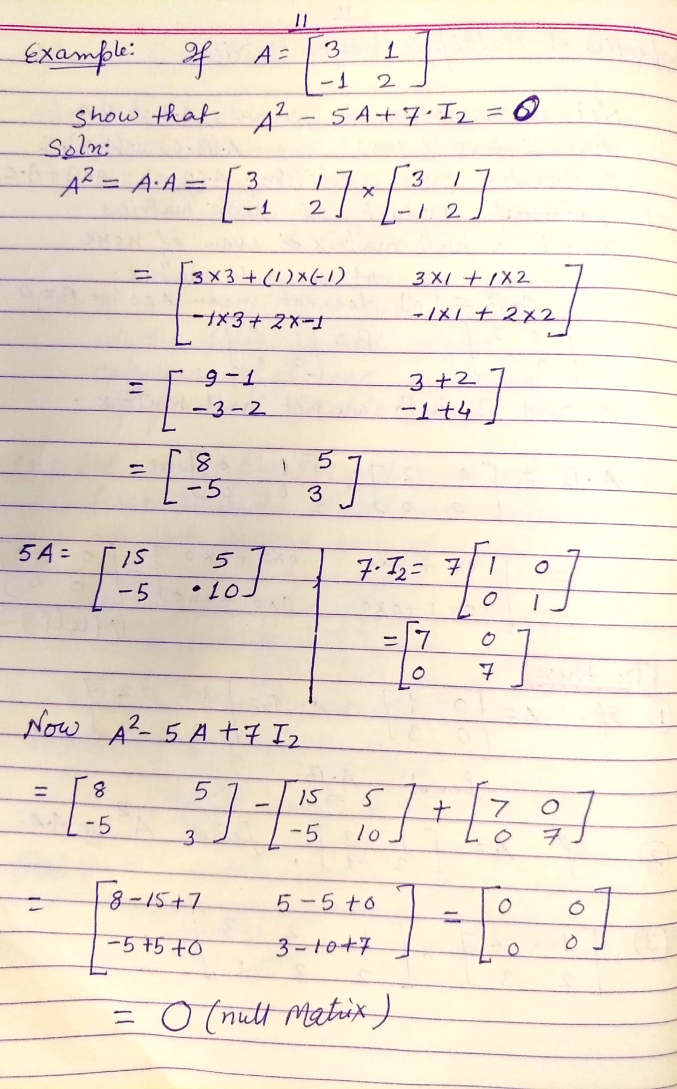 11
Example: If A = [3 1
-1 2]
show that A² - 5A + 7·I₂ = 0
Soln:
A² = A·A = [3 1
-1 2] × [3 1
-1 2]
= [3×3+(1)×(-1) 3×1+1×2
-1×3+2×-1 -1×1+2×2]
= [9-1 3+2
-3-2 -1+4]
= [8 5
-5 3]
5A = [15 5
-5 10]
7·I₂ = 7 [1 0
0 1]
= [7 0
0 7]
Now A² - 5A + 7I₂
= [8 5
-5 3] - [15 5
-5 10] + [7 0
0 7]
= [8-15+7 5-5+0
-5+5+0 3-10+7] = [0 0
0 0]
= O (null Matrix)